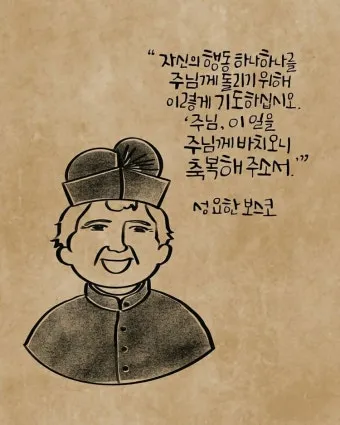 “ 자신의 행동 하나하나를
주님께 돌리기 위해
이렇게 기도하십시오.
‘주님, 이 일을
주님께 바치오니
축복해 주소서.’”
성 요한 보스코